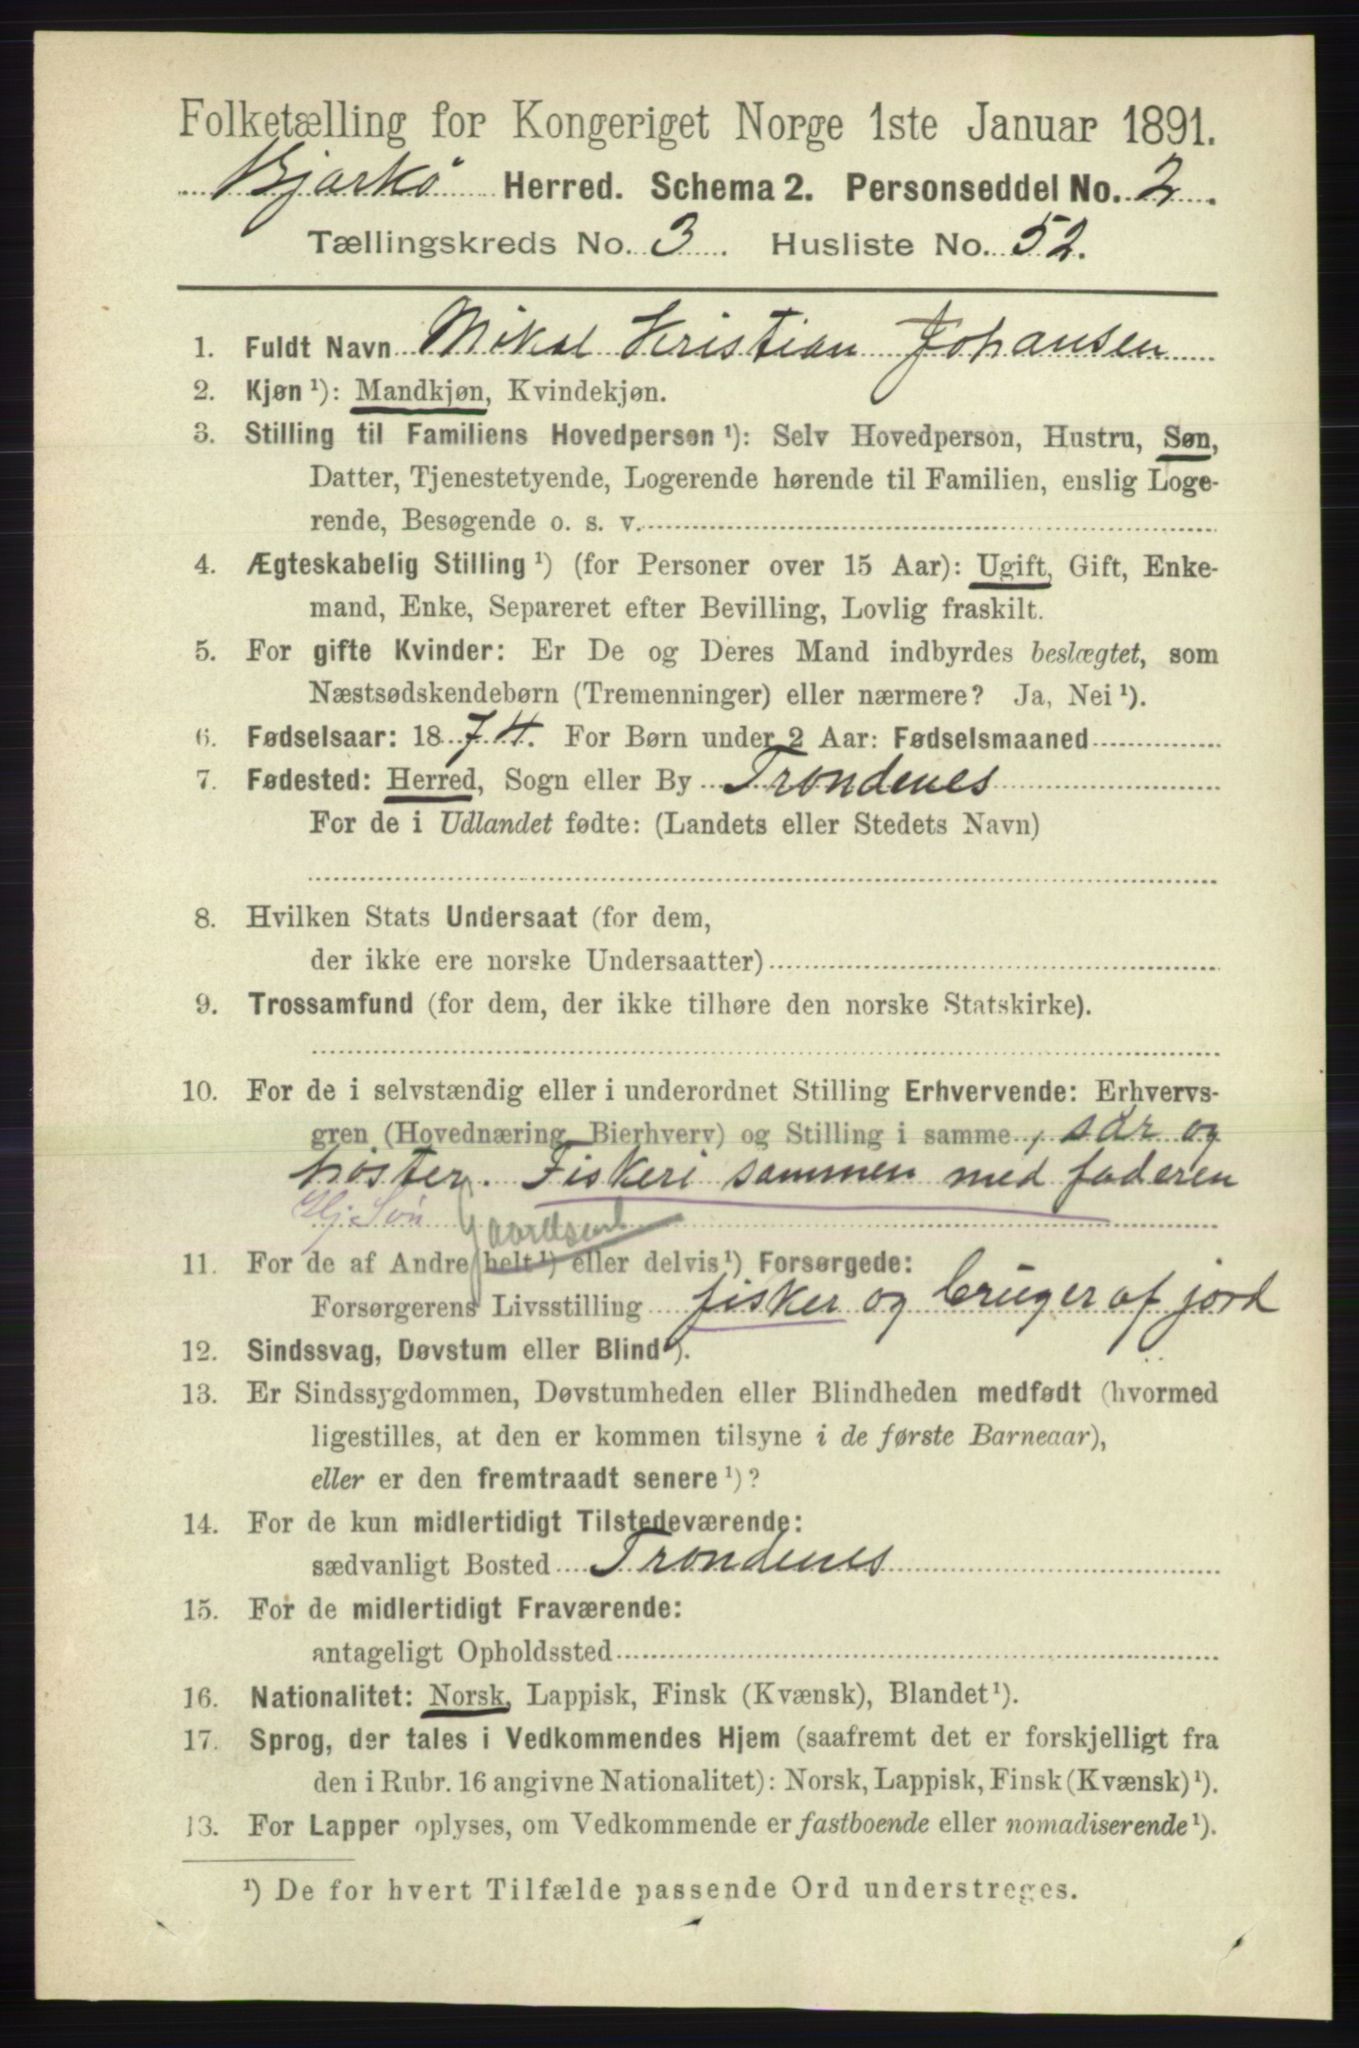 Folketælling for Kongeriget Norge 1ste Januar 1891.
Bjarkö Herred. Schema 2. Personseddel No. 2.
Tællingskreds No. 3. Husliste No. 52.
1. Fuldt Navn Mikal Kristian Johansen
2. Kjøn ¹): Mandkjøn, Kvindekjøn.
3. Stilling til Familiens Hovedperson ¹): Selv Hovedperson, Hustru, Søn,
Datter, Tjenestetyende, Logerende hørende til Familien, enslig Loge-
rende, Besøgende o. s. v.
4. Ægteskabelig Stilling ¹) (for Personer over 15 Aar): Ugift, Gift, Enke-
mand, Enke, Separeret efter Bevilling, Lovlig fraskilt.
5. For gifte Kvinder: Er De og Deres Mand indbyrdes beslægtet, som
Næstsødskendebørn (Tremenninger) eller nærmere? Ja, Nei ¹).
6. Fødselsaar: 1874. For Børn under 2 Aar: Fødselsmaaned
7. Fødested: Herred, Sogn eller By Trondenes
For de i Udlandet fødte: (Landets eller Stedets Navn)
8. Hvilken Stats Undersaat (for dem,
der ikke ere norske Undersaatter)
9. Trossamfund (for dem, der ikke tilhøre den norske Statskirke).
10. For de i selvstændig eller i underordnet Stilling Erhvervende: Erhvervs-
gren (Hovednæring, Bierhverv) og Stilling i samme, sår og
höster. Fiskeri sammen med faderen
Hj. Søn Gaardsarb
11. For de af Andre helt ¹) eller delvis ¹) Forsørgede:
Forsørgerens Livsstilling fisker og bruger af jord
12. Sindssvag, Døvstum eller Blind ¹).
13. Er Sindssygdommen, Døvstumheden eller Blindheden medfødt (hvormed
ligestilles, at den er kommen tilsyne i de første Barneaar),
eller er den fremtraadt senere ¹)?
14. For de kun midlertidigt Tilstedeværende:
sædvanligt Bosted Trondenes
15. For de midlertidigt Fraværende:
antageligt Opholdssted
16. Nationalitet: Norsk, Lappisk, Finsk (Kvænsk), Blandet ¹).
17. Sprog, der tales i Vedkommendes Hjem (saafremt det er forskjelligt fra
den i Rubr. 16 angivne Nationalitet): Norsk, Lappisk, Finsk (Kvænsk) ¹).
13. For Lapper oplyses, om Vedkommende er fastboende eller nomadiserende ¹).
¹) De for hvert Tilfælde passende Ord understreges.